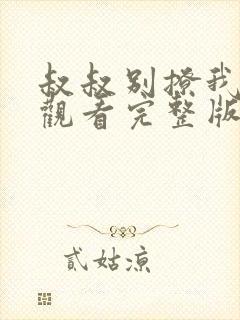 叔叔别撩我
觀看完整版
貳姑涼